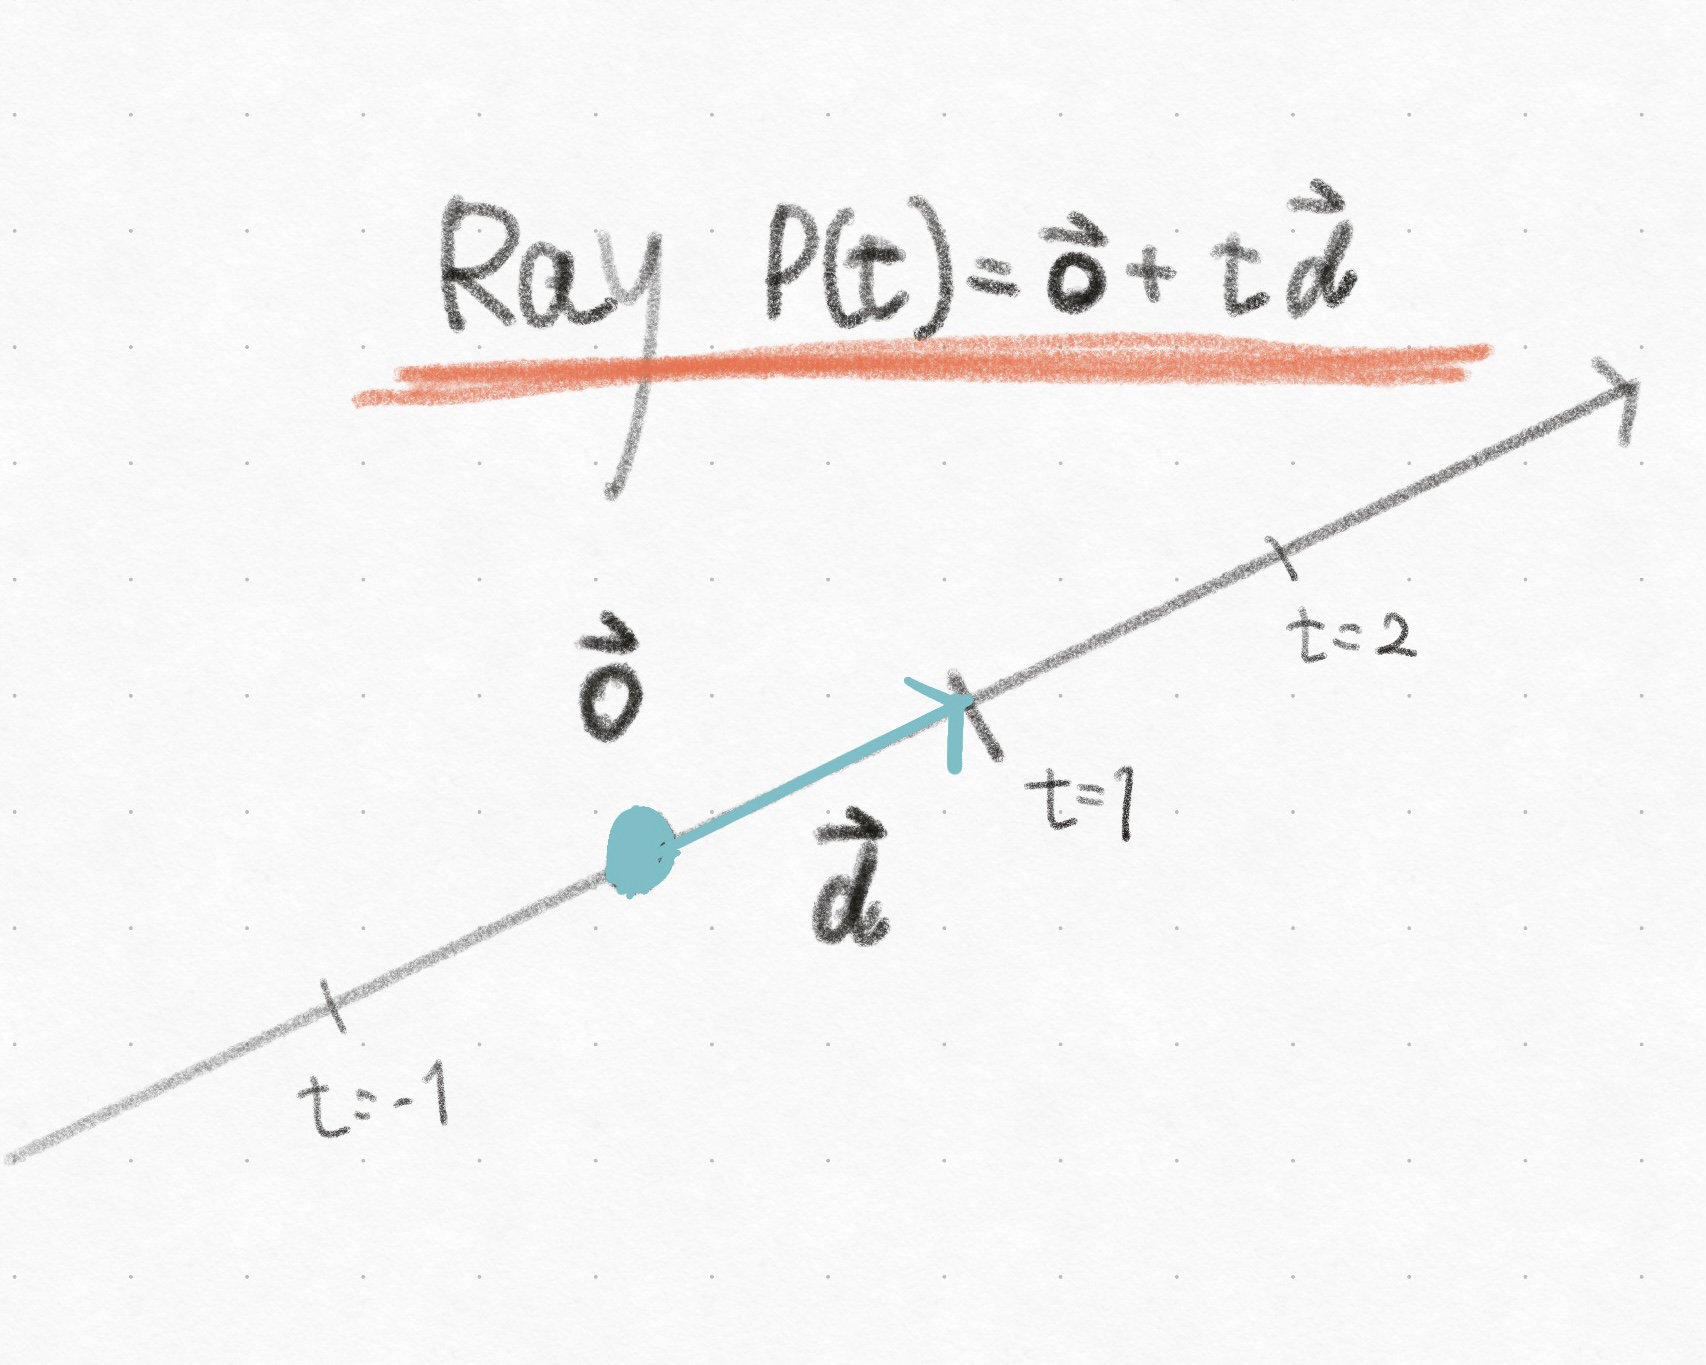 Ray P(t) = o⃗ + t d⃗
t = 2
o⃗
t = 1
d⃗
t = -1